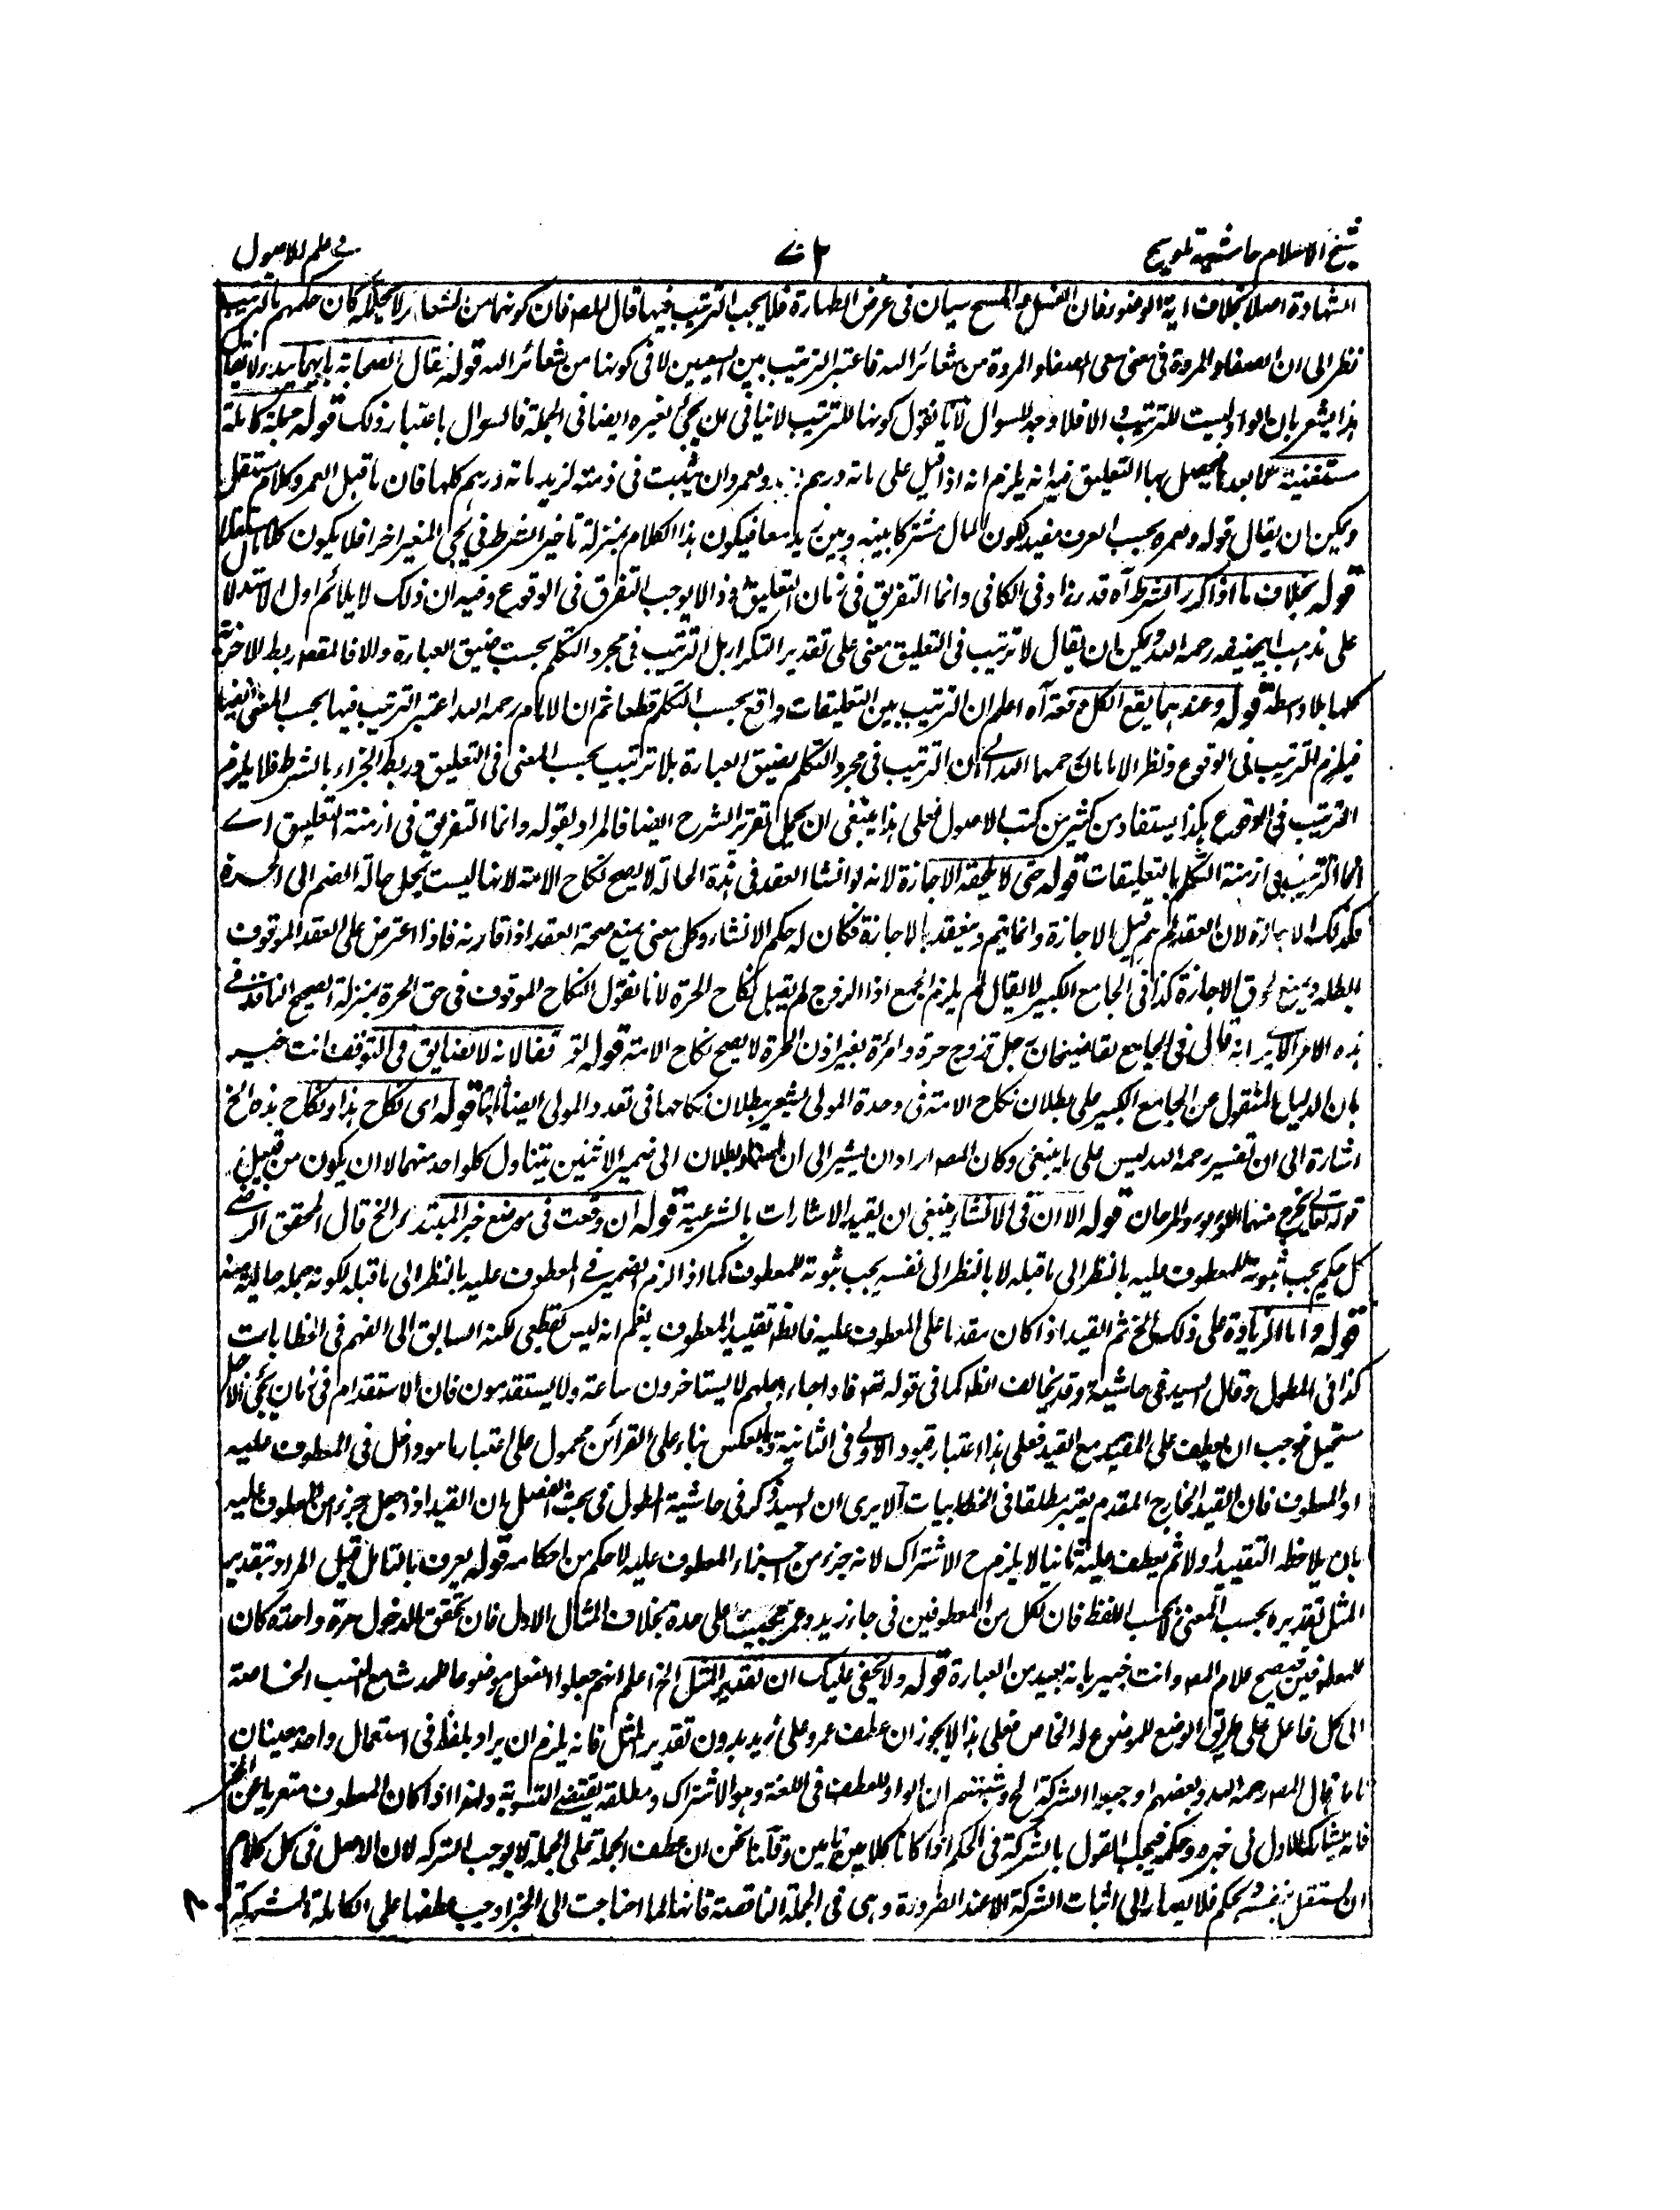 شيخ الاسلام حاشية تلويح
٧٢
في علم الاصول
الشهادة اصلا بخلاف اية الوضوء فان الغسل والمسح سيان في غرض الطهارة فلا يجب الترتيب فيها قال المصه فان كونهما من الشعائر لا يحتمله كان حكمهم بالترتيب
نظر الى ان الصفا والمروة في معنى سعى الصفا والمروة من شعائر الله فاعتبر الترتيب بين السعيين لا في كونها من شعائر الله قوله فقال الصحابة بايهما نبدء ولا يقال
هذا يشعر بان الواو ليست للترتيب والا فلا وجه للسوال لانا نقول كونها للترتيب لا ينافي من يجئ لغيره ايضا في الجملة فالسوال باعتبار ذلك قوله جملة كاملة
مستغنية عما بعدها يحصل بها التعليق فيه انه يلزم انه اذا قيل على مائة درهم لزيد ولعمرو ان يثبت في ذمته لزيد مائة درهم كلها فان ما قبل العمرو كلام مستقل
ويمكن ان يقال قوله ولعمرو بحسب العرف مفيد لكون المال مشتركا بينه وبين زيد معا فيكون هذا الكلام بمنزلة تاخير الشرط في مجئ المغير اخرا فلا يكون كلاما مستقلا
قوله بخلاف ما اذا كرر الشرط آه قد زاد في الكافي وانما التفريق في زمان التعليق وذا لا يوجب التفرق في الوقوع وفيه ان ذلك لا يلائم اول الاستدلال
على مذهب ابيحنيفه رحمه الله ويمكن ان يقال لا ترتيب في التعليق معنى على تقدير التكرار بل الترتيب في مجرد التكلم بحسب ضيق العبارة والا فالمقصه ربط الاخرية
كلها بلا واسطة قوله وعندهما يقع الكل دفعة آه اعلم ان الترتيب بين التعليقات واقع بحسب التكلم قطعا ثم ان الامام رحمه الله اعتبر الترتيب فيها بحسب المعنى ايضا
فيلزم الترتيب في الوقوع ونظر الامامان رحمهما الله الى ان الترتيب في مجرد التكلم لضيق العبارة بلا ترتيب بحسب المعنى في التعليق وربط الجزاء بالشرط فلا يلزم
الترتيب في الوقوع هكذا يستفاد من كثير من كتب الاصول فعلى هذا ينبغي ان يحمل تقرير الشرح ايضا فالمراد بقوله وانما التفريق في ازمنة التعليق اے
انما الترتيب في ازمنة التكلم بالتعليقات قوله حتى لا يلحقه الاجازة لانه لو انشا العقد في هذه الحالة لا يصح نكاح الامة لانها ليست بمحل حالة الضم الى الحرة
فكذلك الاجازة لان العقد لم يتم قبل الاجازة وانما يتم وينعقد بالاجازة فكان له حكم الانشاء وكل معنى يمنع صحة العقد اذا قارنه فاذا اعترض على العقد الموقوف
ابطله ويمنع لحوق الاجازة كذا في الجامع الكبير لا يقال لم يلزم الجمع اذا الزوج لم يقبل نكاح الحرة لانا نقول النكاح الموقوف في حق الحرة بمنزلة الصحيح النافذ في
هذه الامر الا يرى انه قال في الجامع لقاضيخان رجل تزوج حرة وامرأة بغير اذن الحرة لا يصح نكاح الامة قوله فقالا لانه لا تضايق في التوقف انت خبير
بان الدليل المنقول عن الجامع الكبير على بطلان نكاح الامة في وحدة المولى يشعر ببطلان نكاحها في تعدد المولى ايضا قوله اى نكاح هذا ونكاح هذه الخ
اشارة الى ان تفسير رحمه الله ليس على ما ينبغي وكان المصه اراد ان يشير الى ان اسناد البطلان الى ضمير الاثنين يتناول كلواحد منهما لا ان يكون من قبيل
قوله تعالى يخرج منهما اللؤلؤ والمرجان قوله الا ان في الانشاء ينبغي ان يقيد الاشارات بالشرعية قوله ان وقعت في موضع خبر المبتدء الخ قال المحقق الرضى
كل حكم يجب ثبوته للمعطوف عليه بالنظر الى ما قبله لا بالنظر الى نفسه يجب ثبوته للمعطوف كما اذا لزم الضمير في المعطوف عليه بالنظر الى ما قبله لكونه جملة حالية او صفة
قوله واما الزيادة على ذلك الخ ثم القيد اذا كان مقدما على المعطوف عليه فالظه تقييد المعطوف به نعم انه ليس بقطعي لكنه السابق الى الفهم في الخطابات
كذا في المطول وقال السيد في حاشية وقد يخالف الظه كما في قوله تع فاذا جاء اجلهم لا يستاخرون ساعة ولا يستقدمون فان الاستقدام في زمان مجئ الاجل
مستحيل فوجب ان يعطف على المقيد مع القيد فعلى هذا اعتبار قيود الاولى في الثانية وبالعكس بناء على القرائن محمول على اعتبار ما هو داخل في المعطوف عليه
او المعطوف فان القيد الخارج المقدم يعتبر مطلقا في الخطابيات الا يرى ان السيد ذكر في حاشية المطول في بحث الفصل بان القيد اذا جعل جزء من المعطوف عليه
بان يلاحظ التقييد اولا ثم يعطف عليه ثانيا لا يلزم ح الاشتراك لانه جزء من اجزاء المعطوف عليه لا حكم من احكامه قوله يعرف بالتامل قيل المراد بتقدير
المثل تقديره بحسب المعنى لا بحسب اللفظ فان لكل من المعطوفين في جاء زيد وعمرو مجيئا على حدة بخلاف المثال الاول فان تحقق الدخول مرة واحدة كان
للمعطوفين فيصح كلام المصه وانت خبير بانه بعيد من العبارة قوله ولا يخفى عليك ان تقدير المثل الخ اعلم انهم جعلوا الفعل موضوعا للحدث مع النسب الخاصة
الى كل فاعل على طريق الوضع للموضوع له الخاص فعلى هذا لا يجوز ان عطف عمرو على زيد بدون تقدير المثل فانه يلزم ان يراد بلفظ في استعمال واحد معينان
قال المصه رحمه الله وبعضهم اوجبوا الشركة الخ وشبهتهم ان الواو للعطف في اللغة وهو الاشتراك ومطلقه يقتضى التسوية ولهذا اذا كان المعطوف متعريا عن الخبر
فانه يشارك الاول في خبره وحكمه فيجب القول بالشركة في الحكم اذا كانا كلامين تامين وقلنا نحن ان عطف الجملة على الجملة لا يوجب الشركة لان الاصل في كل كلام
ان يستقل بنفسه وحكمه فلا يصار الى اثبات الشركة الا عند الضرورة وهى في الجملة الناقصة فانها لما احتاجت الى الخبر اوجب عطفها على الكاملة الشركة